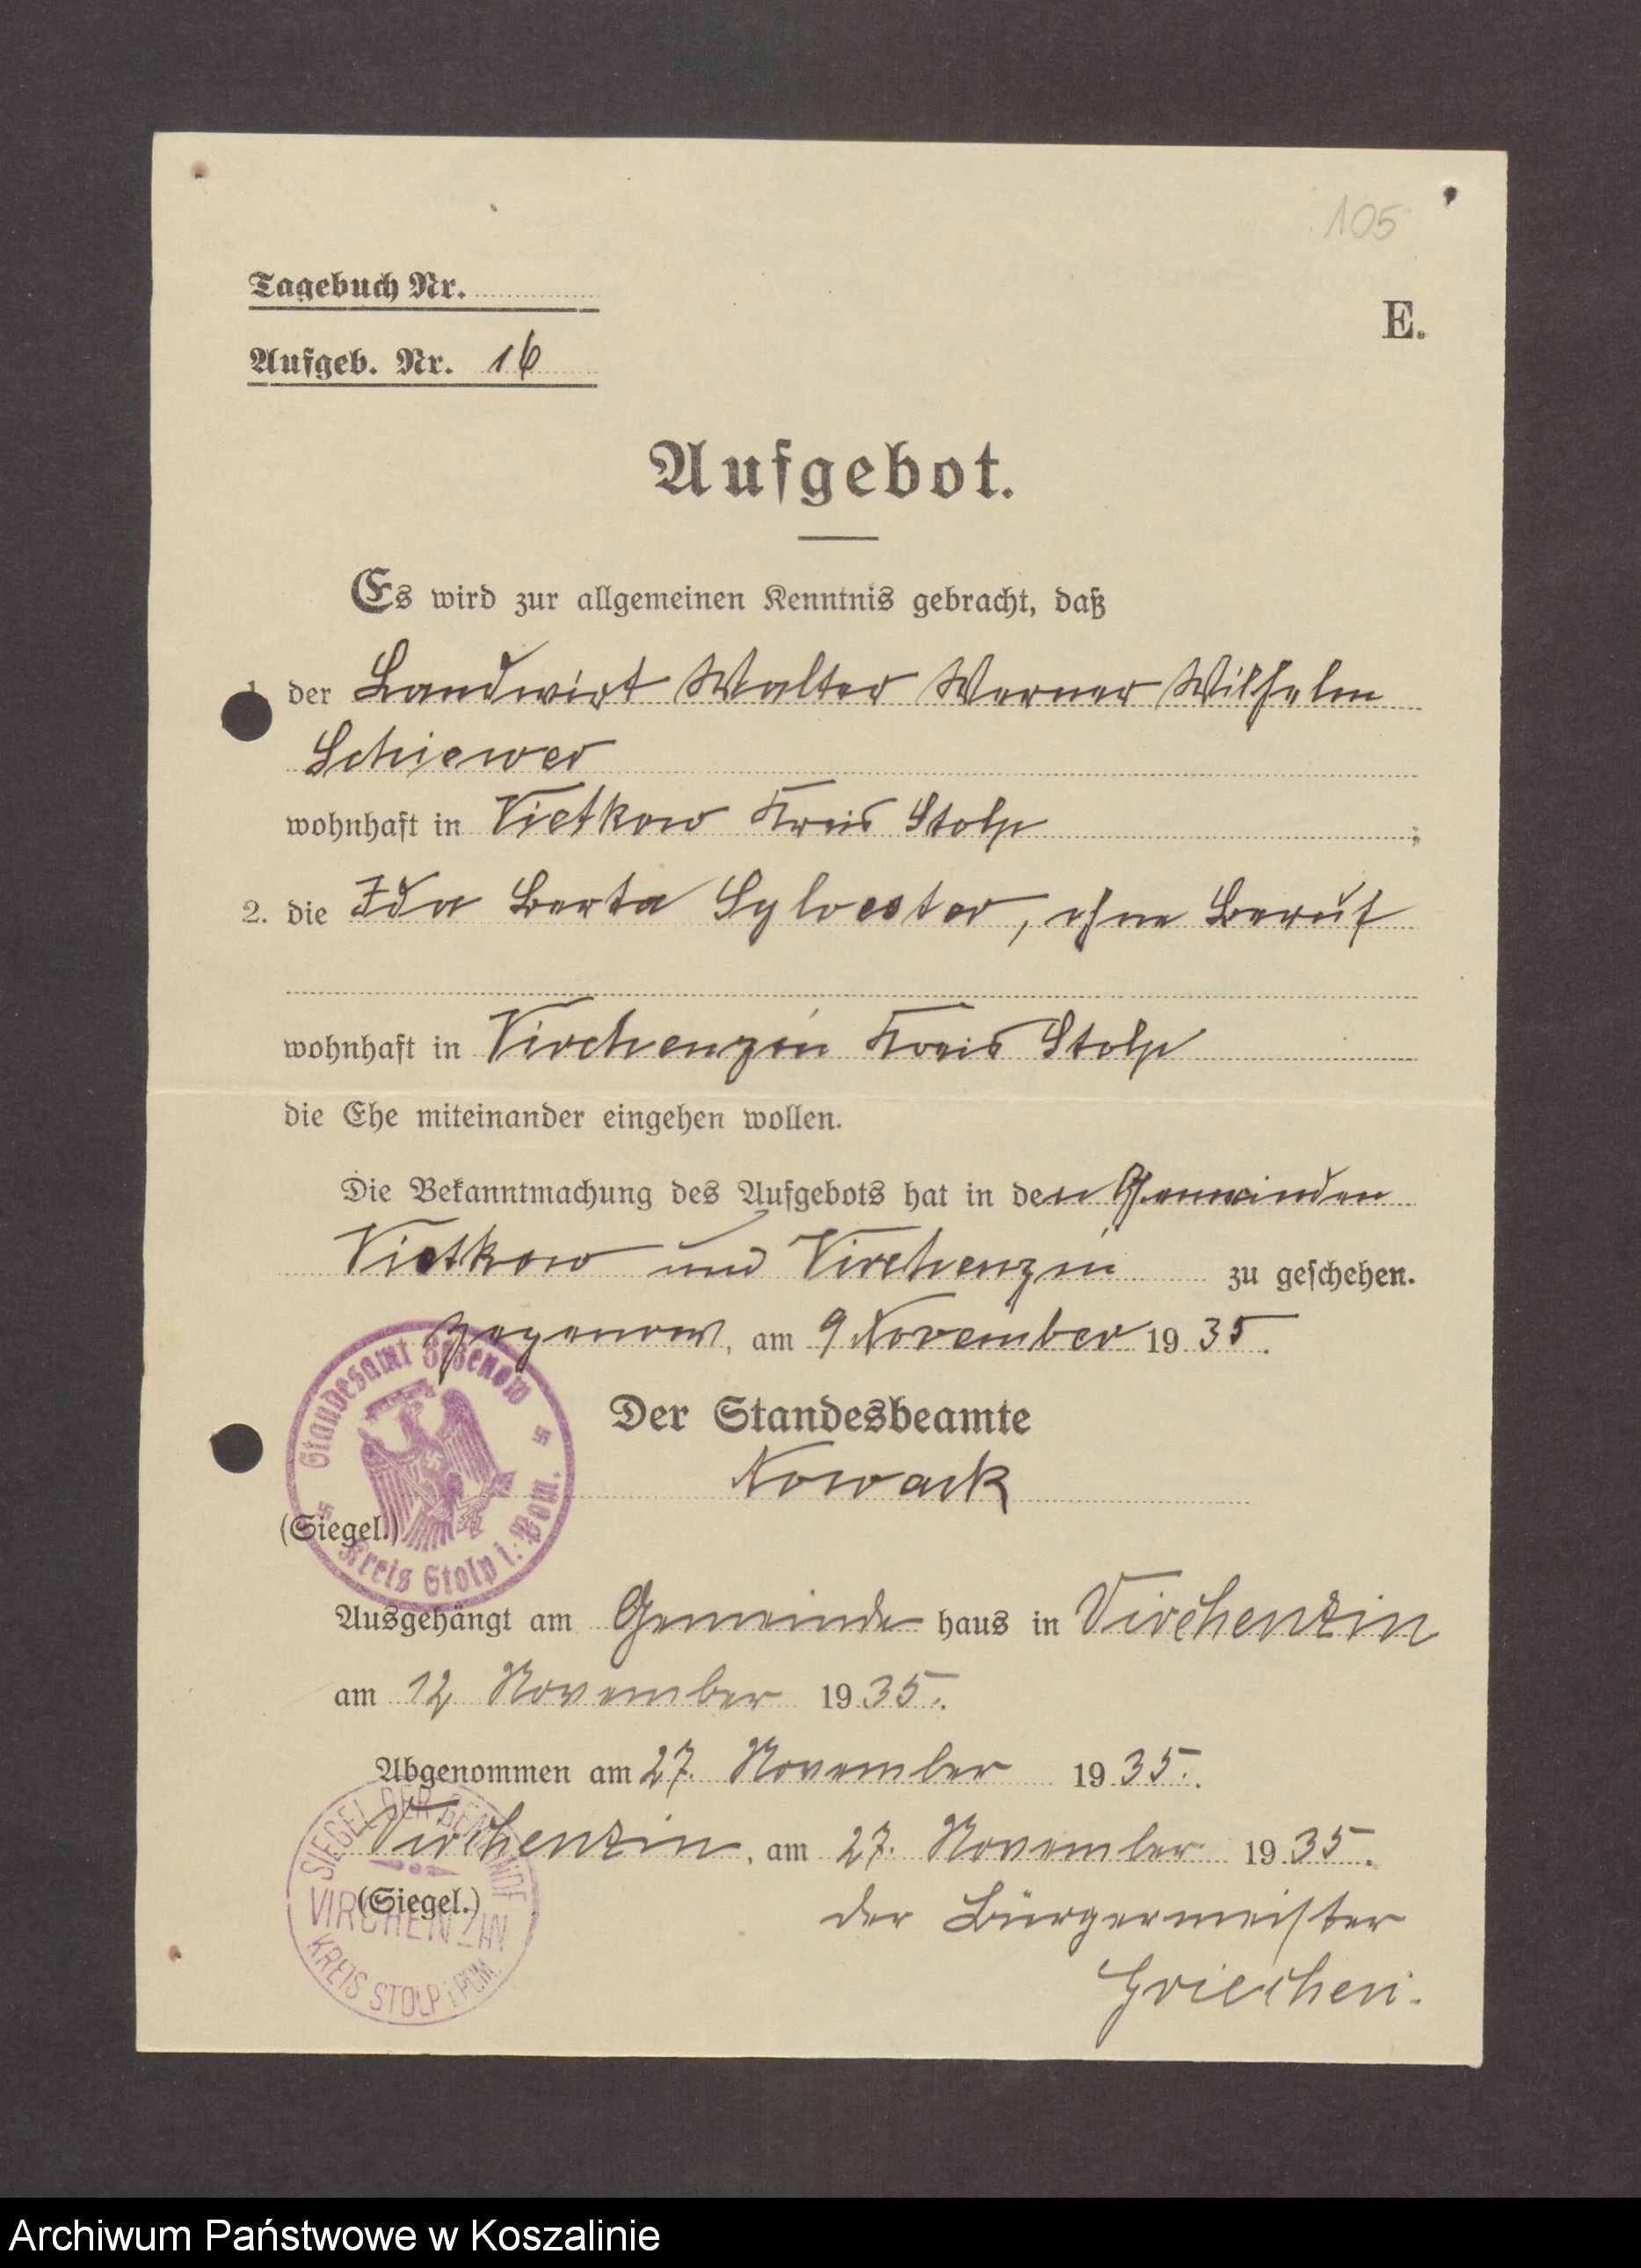 105
Tagebuch Nr.
E.
Aufgeb. Nr. 16
Aufgebot.
Es wird zur allgemeinen Kenntnis gebracht, daß
1. der Landwirt Walter Werner Wilhelm
Schiewer
wohnhaft in Vietkow Kreis Stolp ;
2. die Ida Berta Sylvester, ohne Beruf
wohnhaft in Virchenzin Kreis Stolp
die Ehe miteinander eingehen wollen.
Die Bekanntmachung des Aufgebots hat in den Gemeinden
Vietkow und Virchenzin zu geschehen.
Zezenow, am 9 November 1935.
Standesamt Zezenow
Kreis Stolp i. Pom.
Der Standesbeamte
Nowack
(Siegel.)
Ausgehängt am Gemeinde haus in Virchenzin
am 12 November 1935.
Abgenommen am 27. November 1935.
Virchenzin, am 27. November 1935.
SIEGEL DER GEMEINDE
VIRCHENZIN
KREIS STOLP i. POM.
(Siegel.)
der Bürgermeister
Archiwum Państwowe w Koszalinie